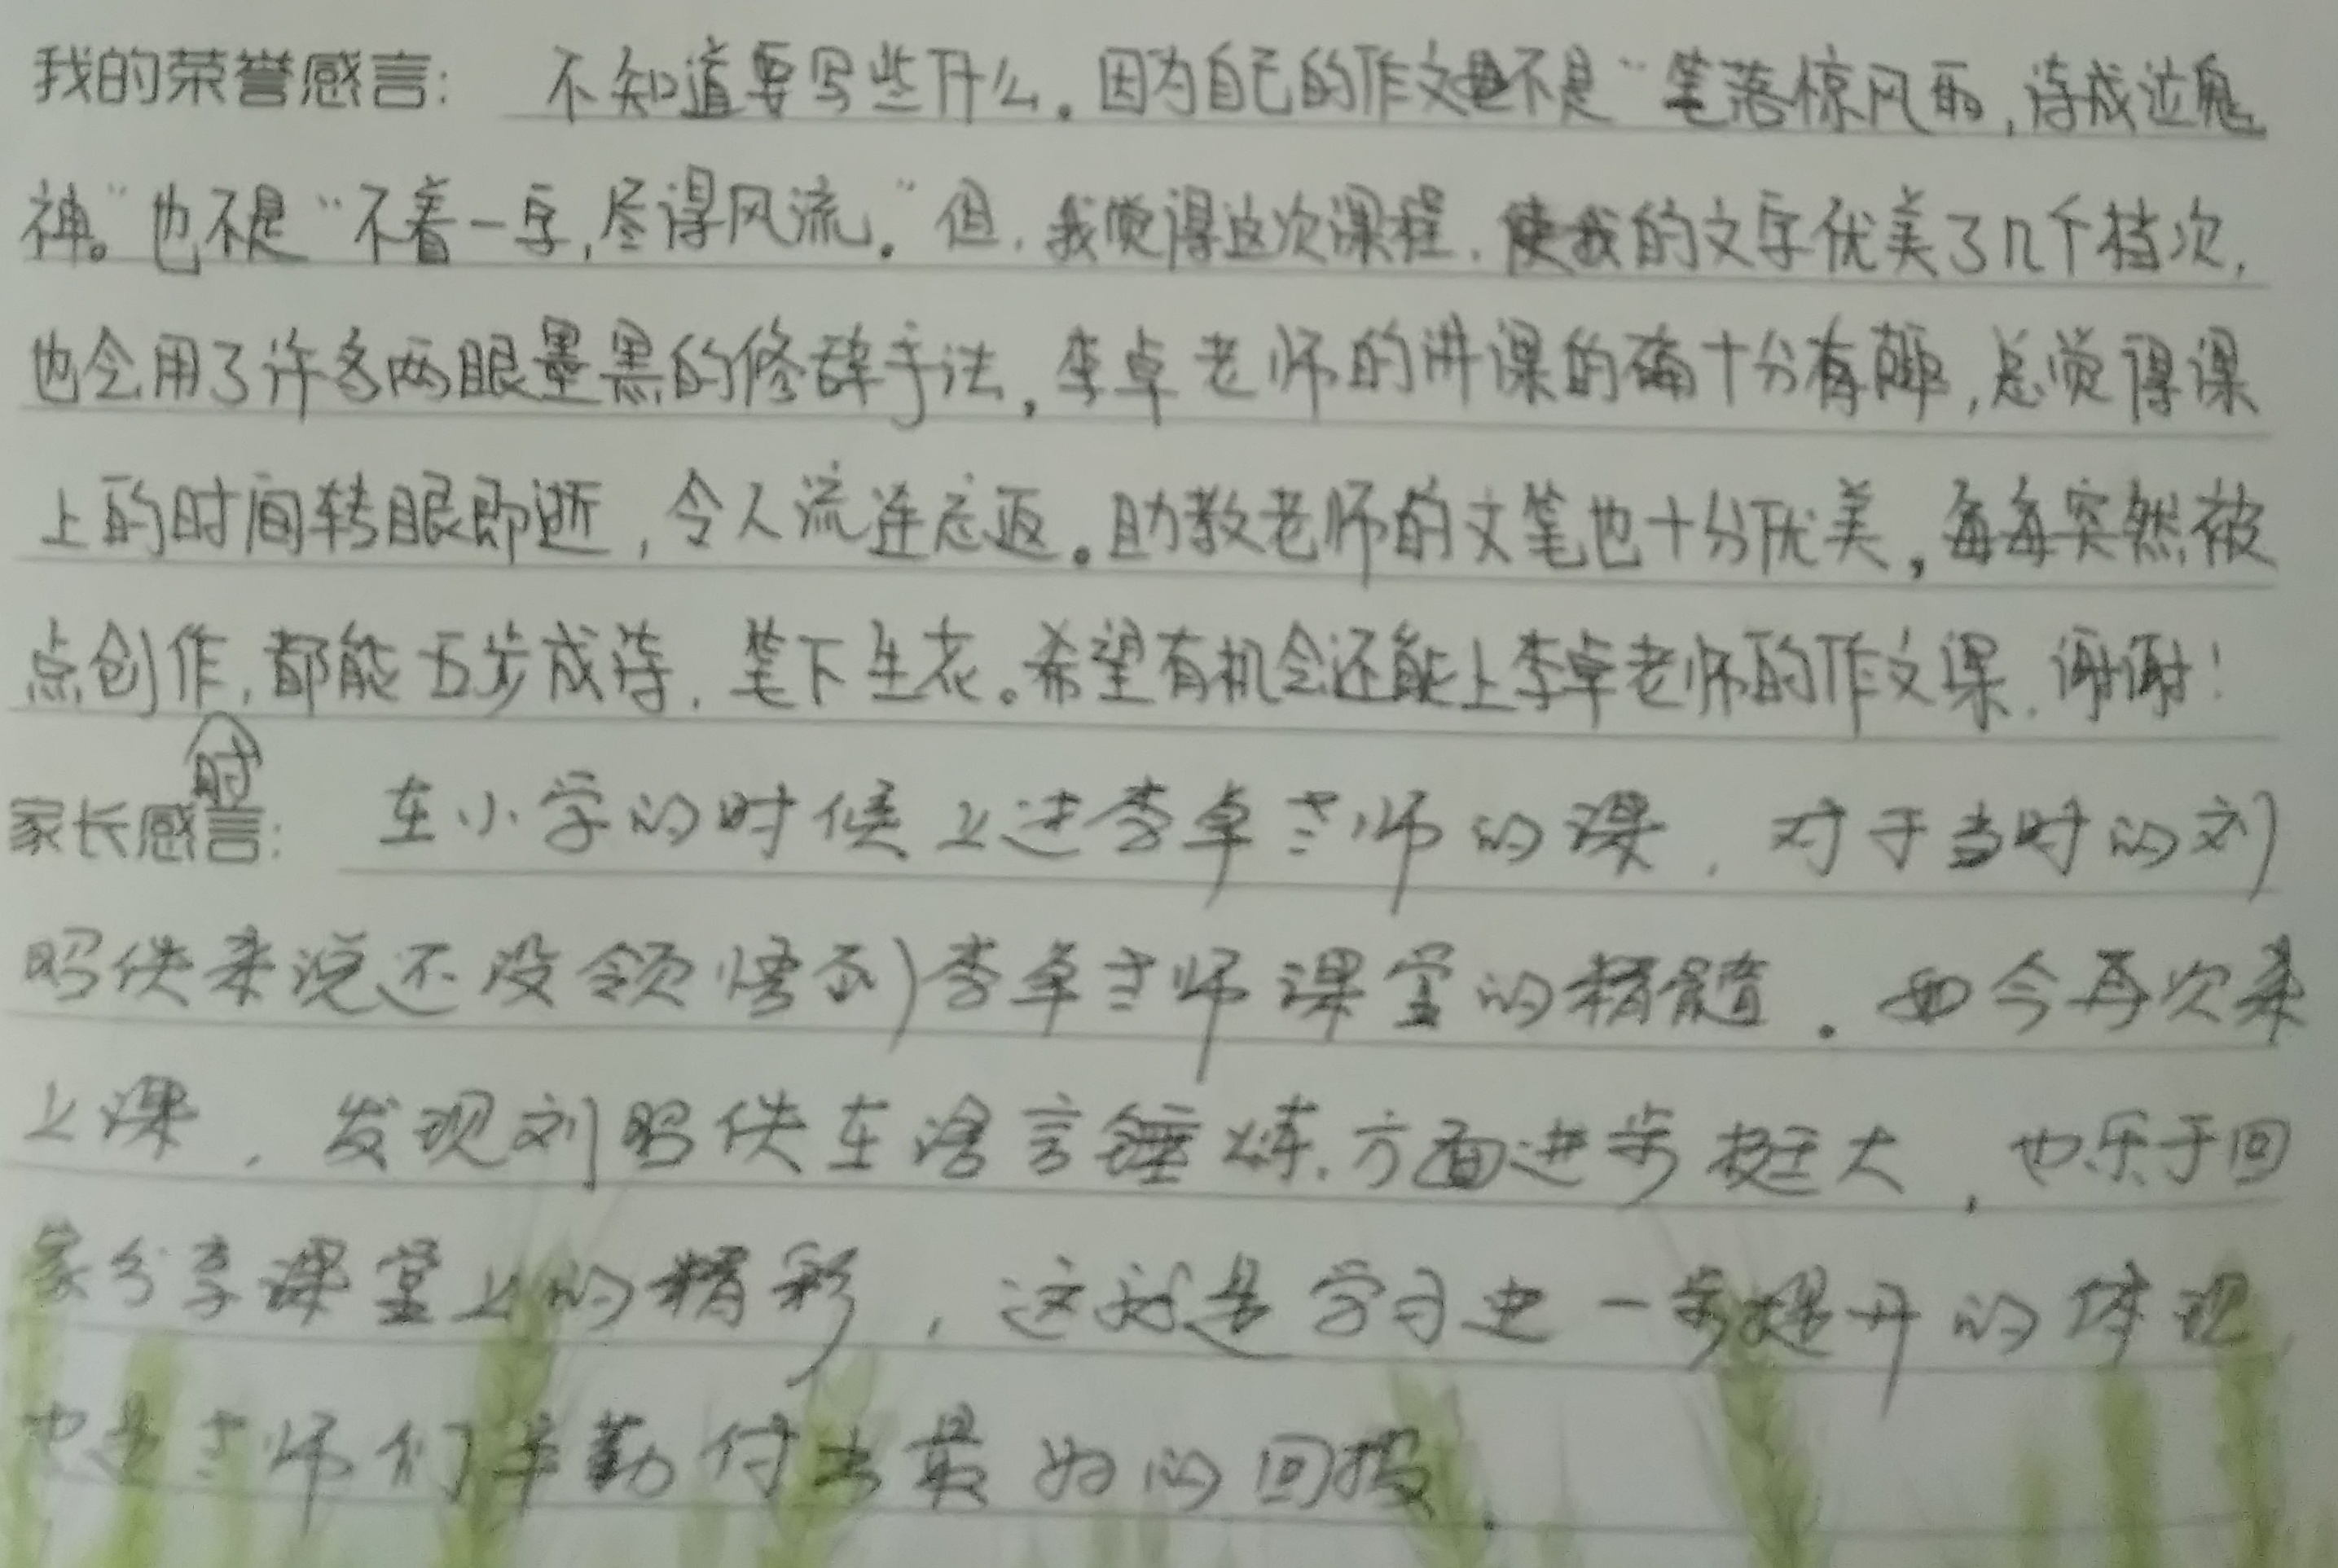 我的荣誉感言：不知道要写些什么。因为自己的作文不是“笔落惊风雨，诗成泣鬼
神。”也不是“不着一字，尽得风流。”但，我觉得这次课程，使我的文字优美了几个档次，
也会用了许多两眼墨黑的修辞手法。李卓老师的讲课的确十分有趣，总觉得课
上的时间转眼即逝，令人流连忘返。助教老师的文笔也十分优美，每每突然被
点创作，都能五步成诗，笔下生花。希望有机会还能上李卓老师的作文课，谢谢！
时
家长感言：在小学的时候上过李卓老师的课，对于当时的刘
昭佚来说还没领悟到李卓老师课堂的精髓。如今再次来
上课，发现刘昭佚在语言锤炼方面进步挺大，也乐于回
家分享课堂上的精彩，这就是学习进一步提升的体现
也是老师们辛勤付出最好的回报。